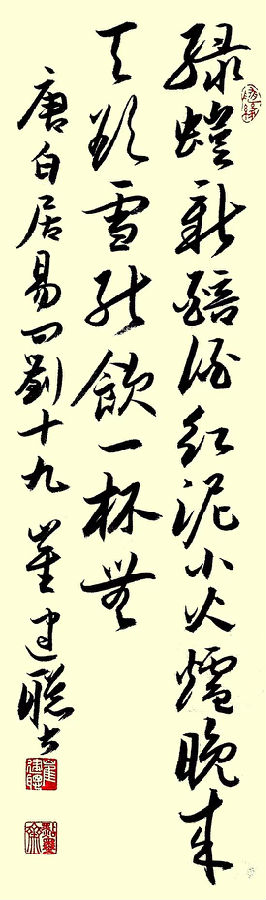 綠螘新醅酒紅泥小火爐晚來
天欲雪能飲一杯無
唐白居易問劉十九 崔建聰书